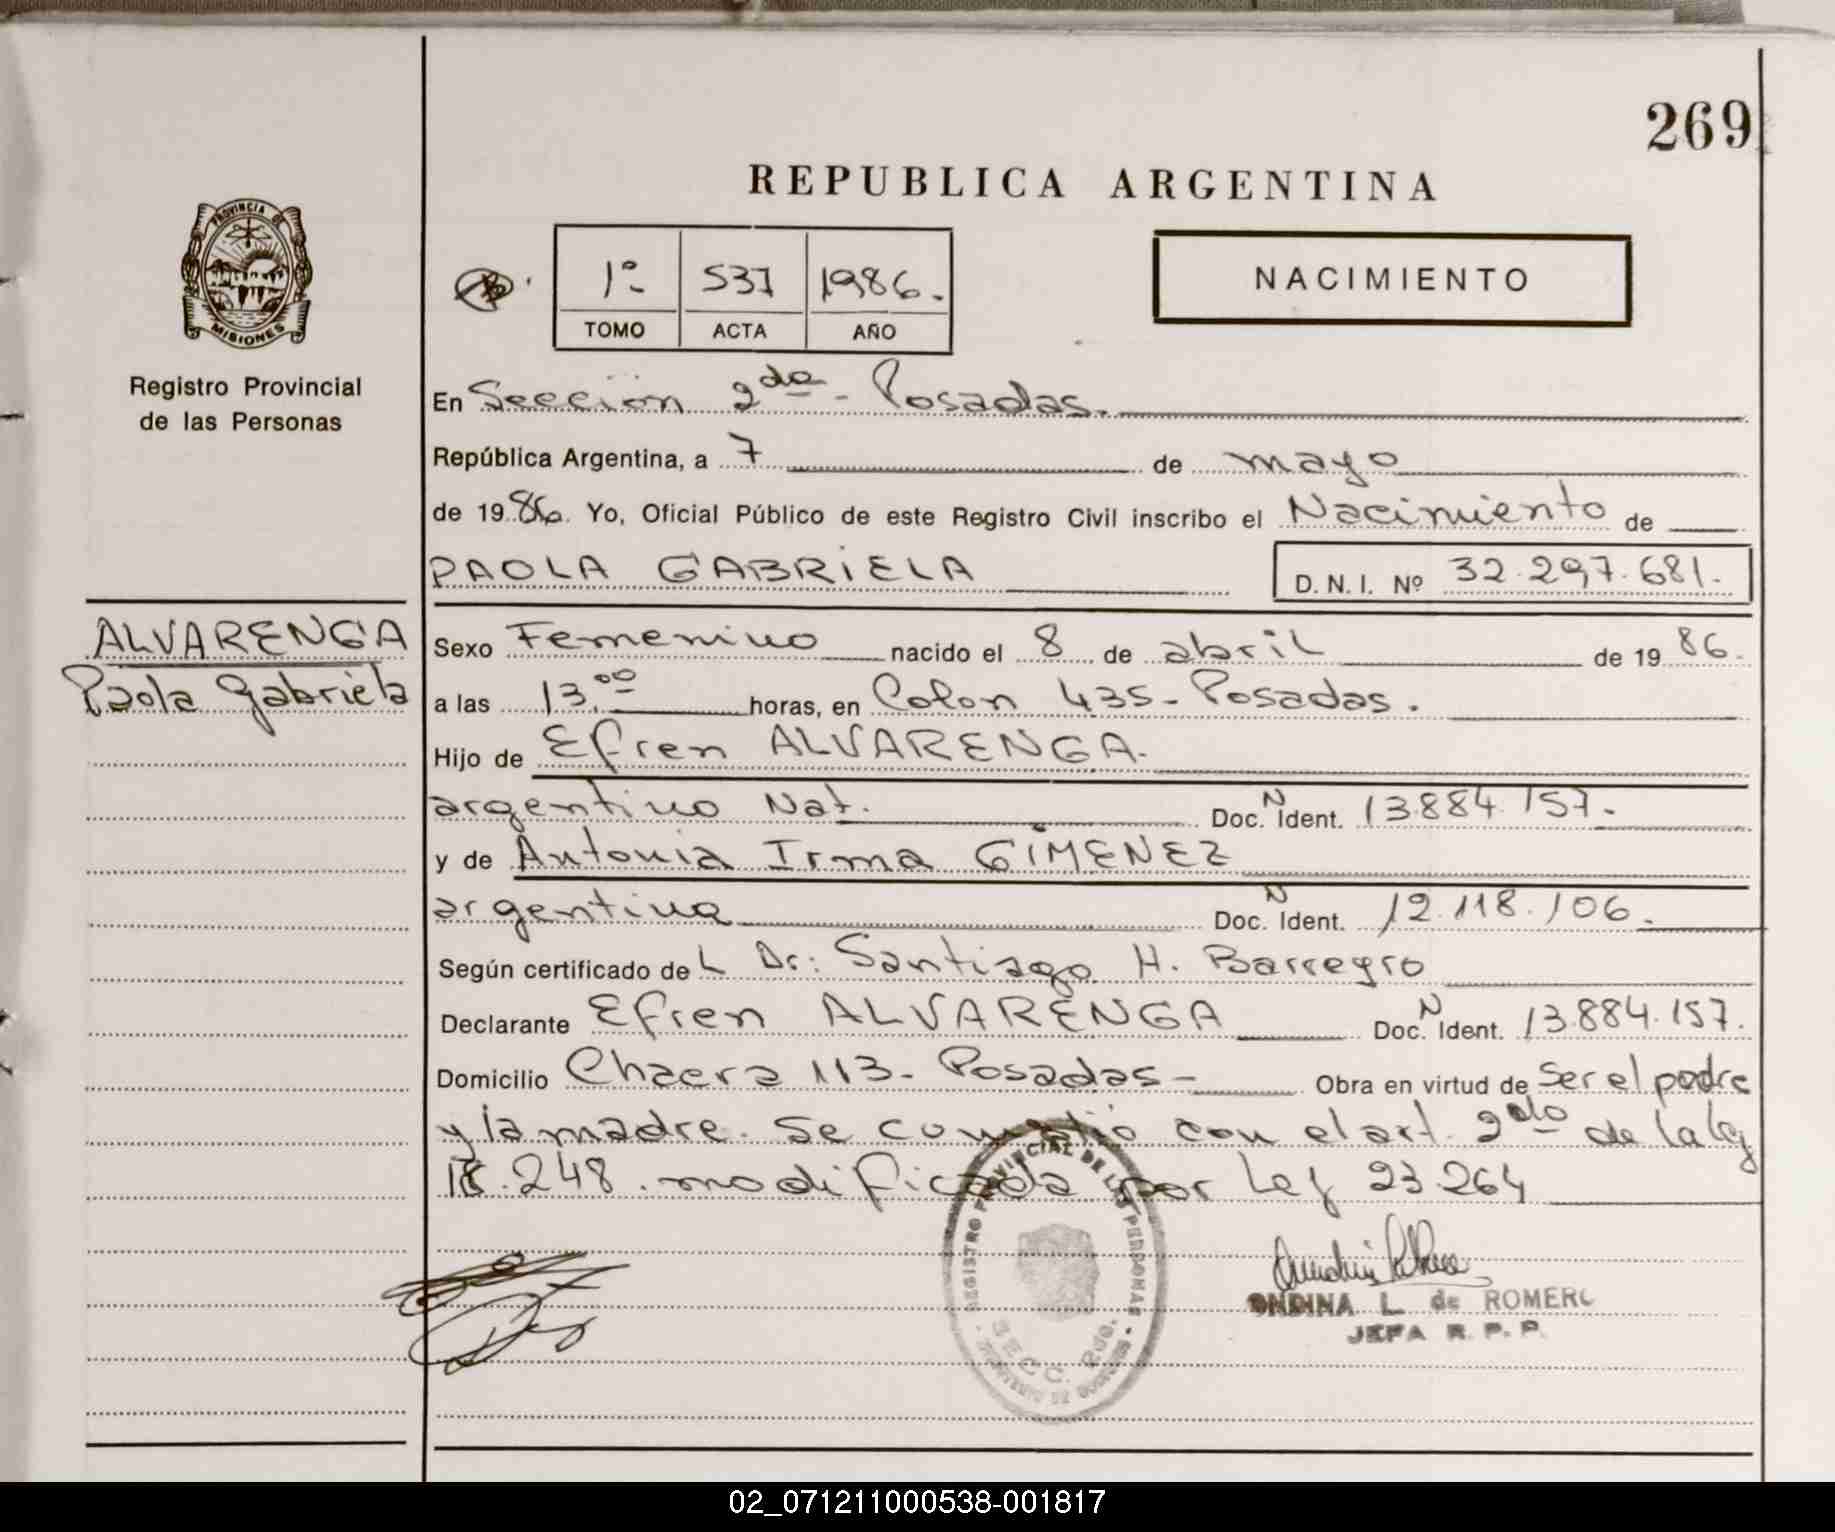 269
REPUBLICA ARGENTINA
PROVINCIA DE
MISIONES
Registro Provincial
de las Personas
1º 537 1986.
TOMO ACTA AÑO
NACIMIENTO
En Sección 2da - Posadas.
República Argentina, a 7 de mayo
de 1986. Yo, Oficial Público de este Registro Civil inscribo el Nacimiento de
PAOLA GABRIELA D. N. I. Nº 32.297.681.
ALVARENGA
Paola Gabriela
Sexo Femenino nacido el 8 de abril de 1986.
a las 13.00 horas, en Colon 435 - Posadas.
Hijo de Efren ALVARENGA.
argentino Nat. Doc. N Ident. 13.884.157.
y de Antonia Irma GIMENEZ
argentina Doc. N Ident. 12.118.106.
Según certificado del Dr: Santiago H. Barreyro
Declarante Efren ALVARENGA Doc. N Ident. 13.884.157.
Domicilio Chacra 113 - Posadas - Obra en virtud de ser el padre
y la madre. Se cumplió con el art. 2do de la ley
18.248. modificada por Ley 23.264
REGISTRO PROVINCIAL DE LAS PERSONAS
SECC. 2da.
ONDINA L. de ROMERO
JEFA R. P. P.
02_071211000538-001817